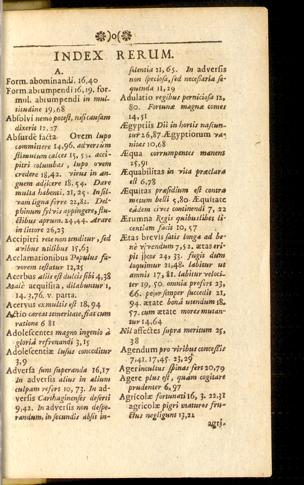 )o(
INDEX RERUM.
A.
Form. abominandi. 16,40
Form. abrumpendi 16,19. for-
mul. abrumpendi in mul-
titudine 19,68
Absolvi nemo potest, nisi causam
dixerit 12, 27
Absurdè facta. Ovem lupo
committere 14,96. adversùm
stimulum calces 15, 55. acci-
pitri columbas, lupo ovem
credere 18,42. virus in an-
guem adjicere 18, 54. Dare
multa habenti, 21, 25. In sil-
vam ligna ferre 22,81. Del-
phinum silvis appingere, flu-
ctibus aprum. 24,44. Arare
in littore 26,23
Accipitri rete non tenditur, sed
avibus utilibus 15,63
Acclamationibus Populus fa-
vorem testatur 12, 25
Acerbas aliis est dulcis sibi 4,38
Malè acquisita, dilabuntur 1,
14. 3,76. v. parta.
Acervus ex multis est 18, 94
Actio careat temeritate, sitas cum
ratione 6 81
Adolescentes magno ingenio à
gloriâ refrenandi 3, 15
Adolescentiæ lusus conceditur
3, 9
Adversa sunt superanda 16,17
In adversis alius in alium
culpam refert 10, 73. In ad-
versis Carthaginenses deserti
9,42. In adversis non despe-
randum, in secundis absit in-
silentia 21, 65. In adversis
non speciosa, sed necessaria se-
quenda 11, 29
Adulatio regibus perniciosa 12,
80. Fortunæ magnæ comes
14, 51
Ægyptiis Dii in hortis nascun-
tur 26,87. Ægyptiorum va-
nitas 10,68
Æqua corrumpentes manens
25,91
Æquabilitas in vita præclara
est 6,78
Æquitas præsidium est contra
metum belli 5,80. Æquitate
eadem cives continendi 7, 22
Ærumna Regis quibuslibet li-
centiam facit 10, 57
Ætas brevis satis longa ad be-
nè vivendum 7,52. ætas eri-
pit jocos 24, 33. fugit dum
loquimur 21,48. labitur ut
amnis 17, 81. labitur veloci-
ter 19, 50. omnia profert 23,
66. pejor semper succedit 21,
94. ætate bonâ utendum 18,
57. cum ætate mores mutan-
tur 14,64
Nil affectes supra meritum 25,
38
Agendum pro viribus concessis
7,41. 17,45. 23,29
Ager incultus spinas fert 20,79
Agere plus est, quam cogitare
prudenter 6, 97
Agricolæ fortunati 16, 3. 22,31
agricolæ pigri maturos fru-
ctus negligunt 13,21
agri-